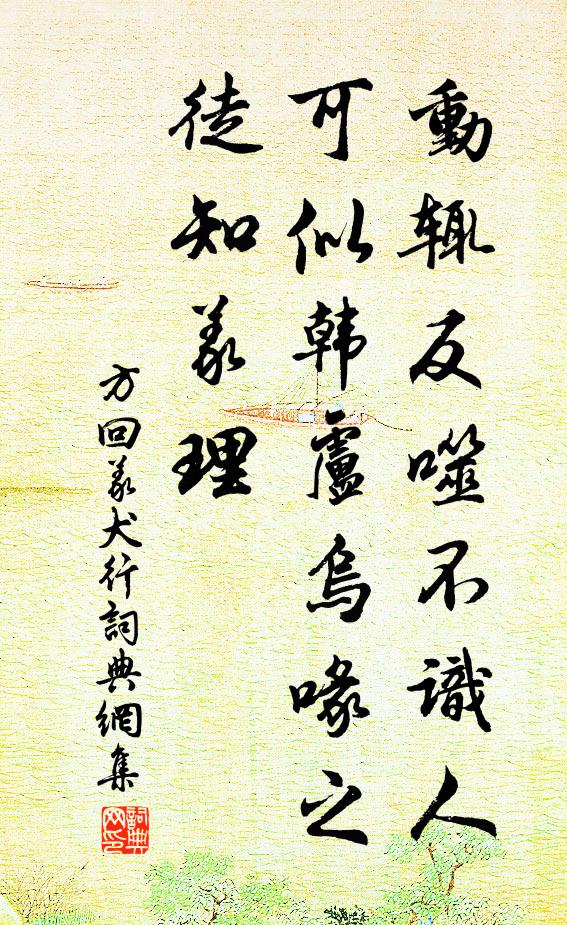 動輒反噬不識人
可似韩盧烏喙之
徒知義理
方回義犬行詞典網集
詞典
网印